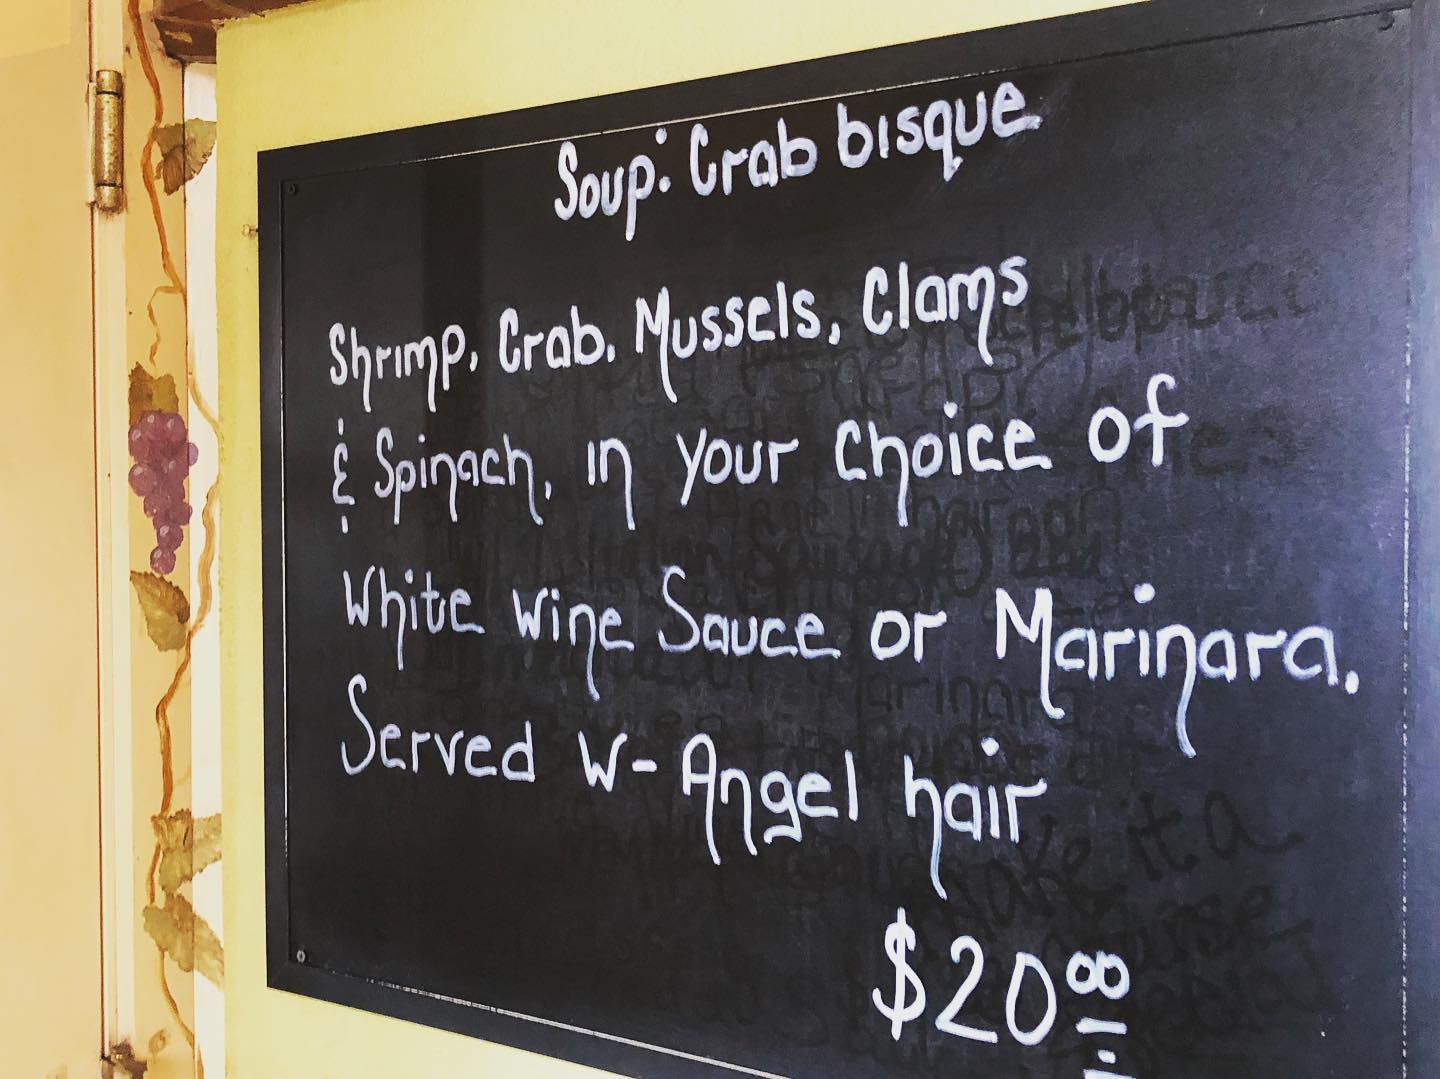 Soup: Crab bisque
Shrimp, Crab, Mussels, Clams
& Spinach, in your choice of
White wine Sauce or Marinara.
Served W- Angel hair
$20.00